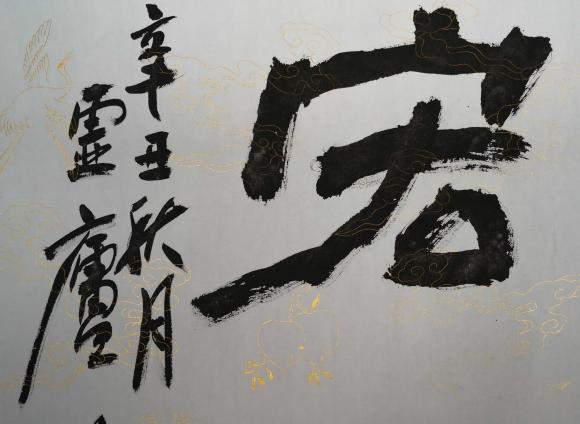 宏
辛丑秋月
靈廬